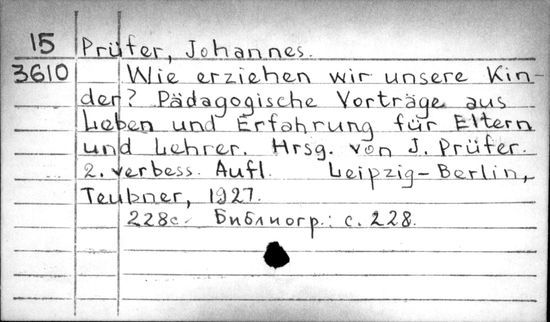 15 Prüfer, Johannes.
3610 Wie erziehen wir unsere Kin-
der? Pädagogische Vorträge aus
Leben und Erfahrung für Eltern
und Lehrer. Hrsg. von J. Prüfer.
2. verbess. Aufl. Leipzig-Berlin,
Teubner, 1927.
228с. Библиогр.: с. 228.